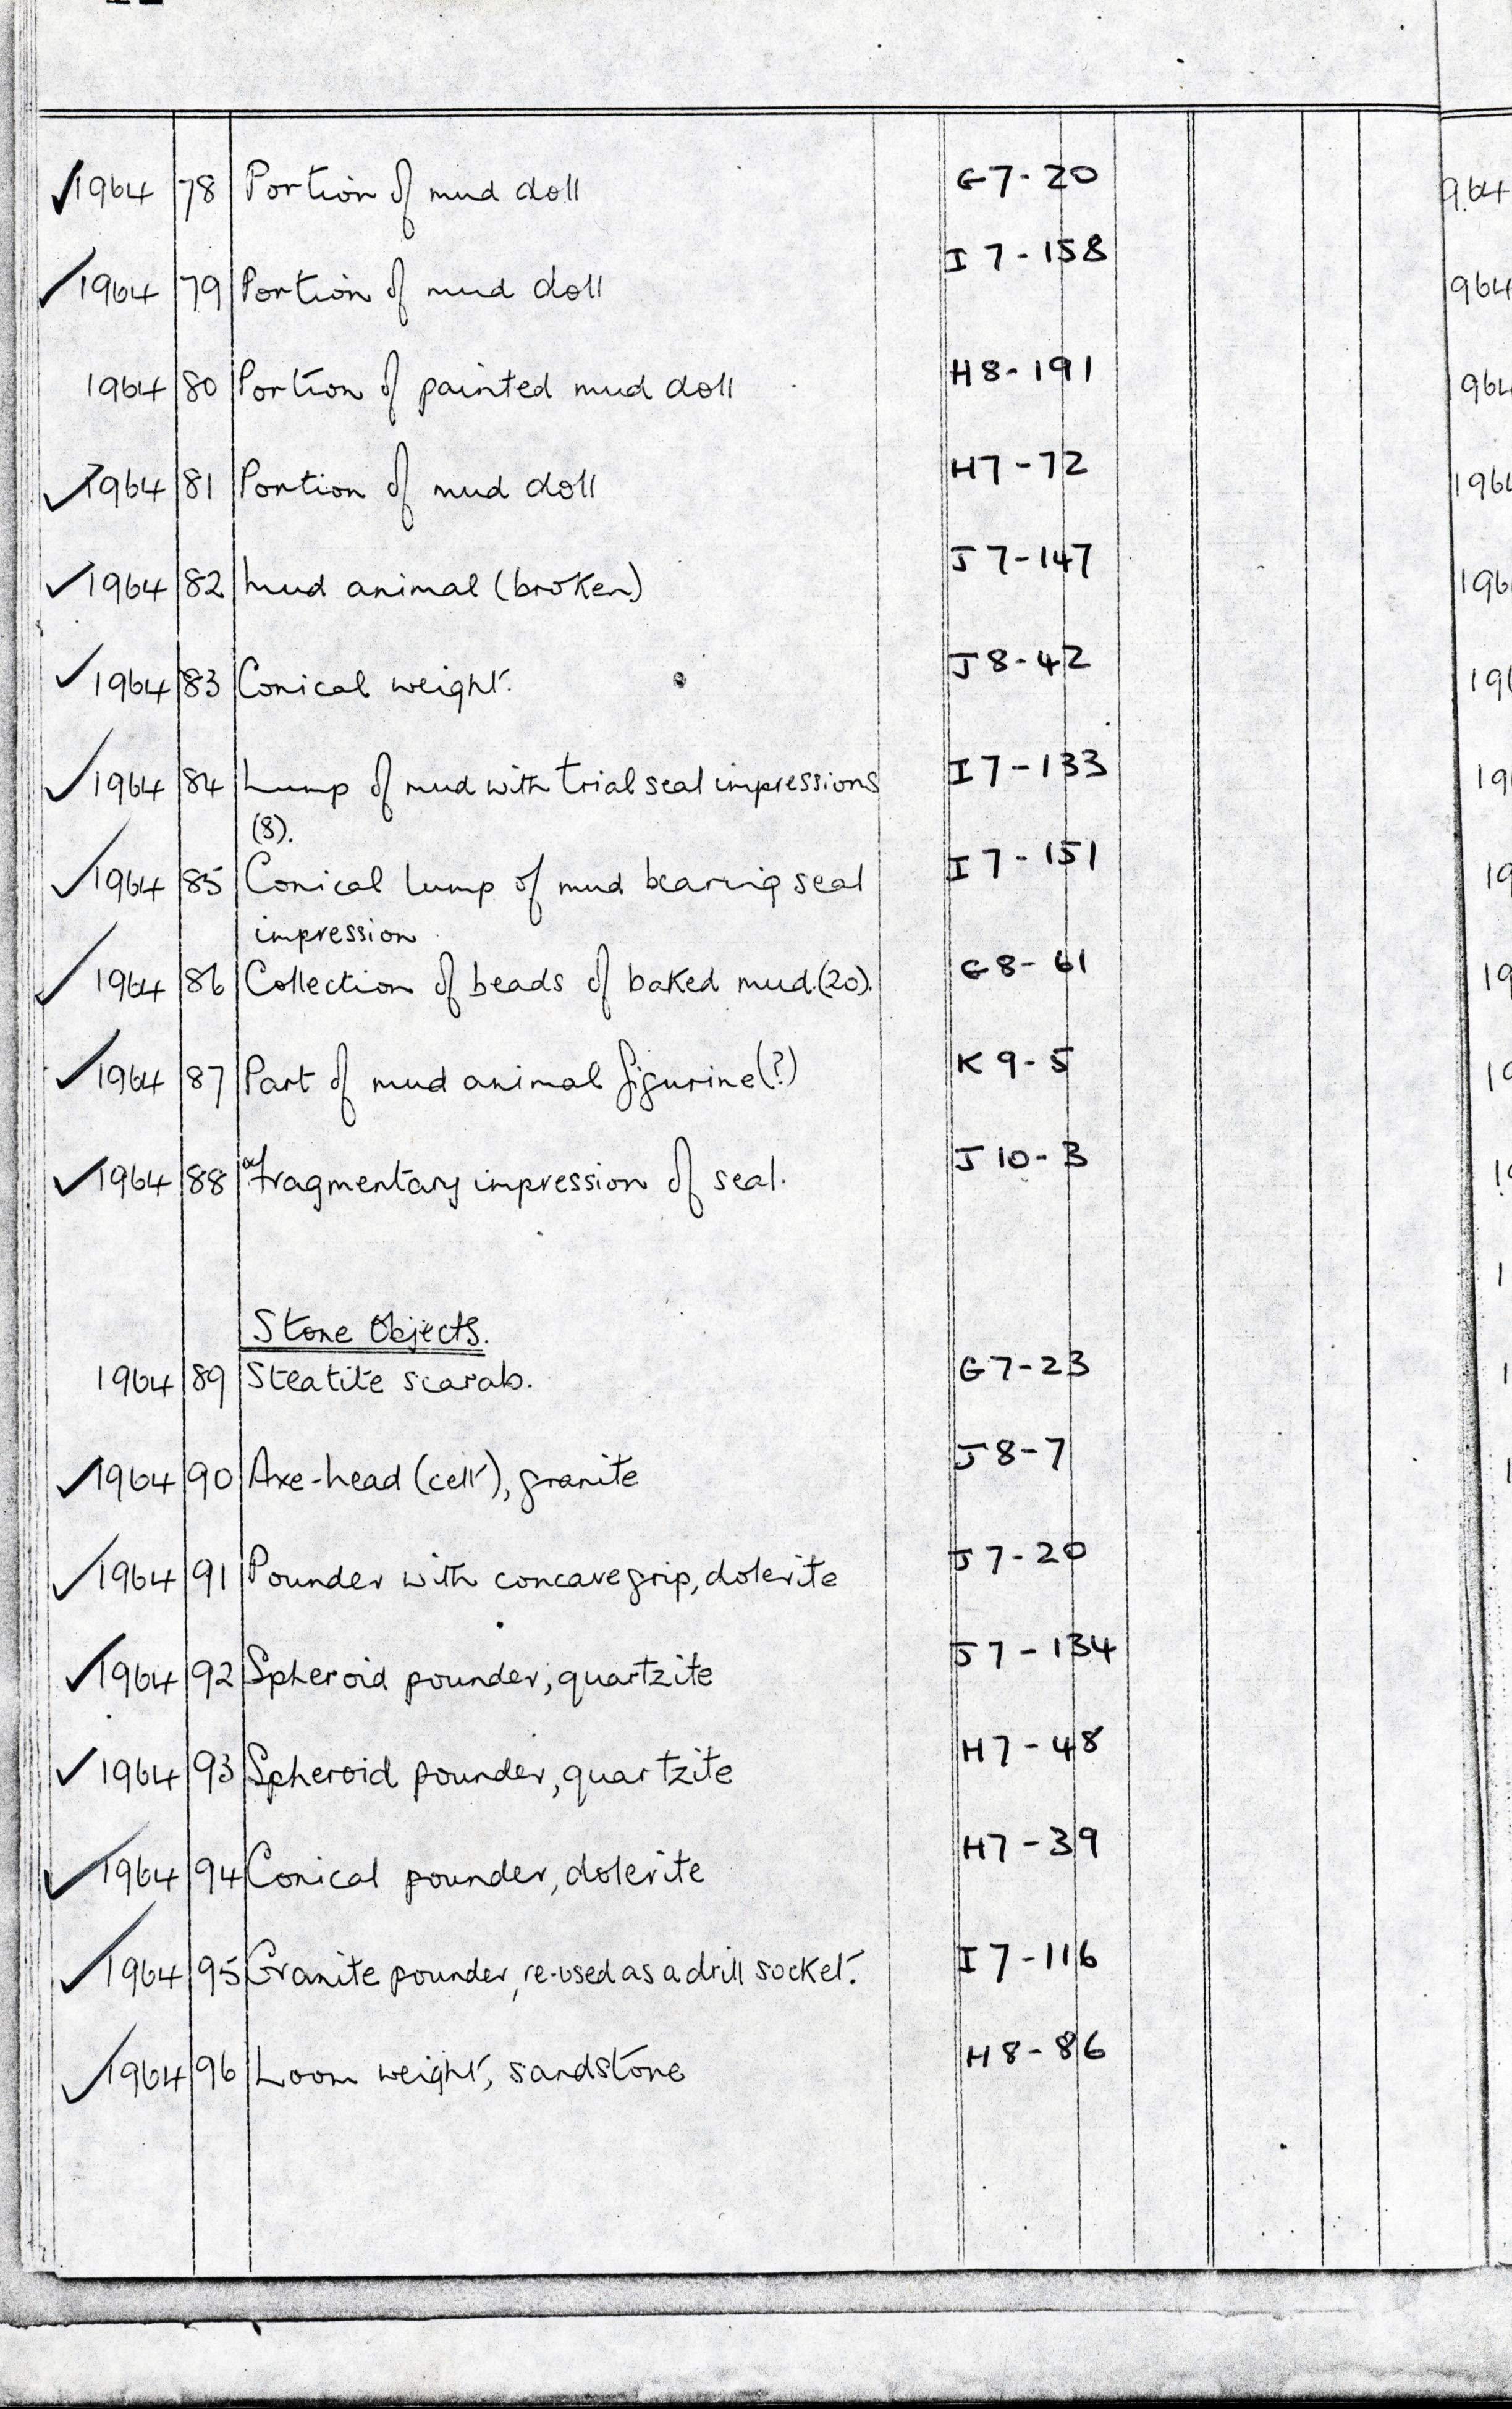 ✓1964 78 Portion of mud doll G7-20
✓1964 79 Portion of mud doll I7-158
1964 80 Portion of painted mud doll H8-191
✓1964 81 Portion of mud doll H7-72
✓1964 82 Mud animal (broken) J7-147
✓1964 83 Conical weight. J8-42
✓1964 84 Lump of mud with trial seal impressions I7-133
(8).
✓1964 85 Conical lump of mud bearing seal I7-151
impression
✓1964 86 Collection of beads of baked mud.(20). G8-61
✓1964 87 Part of mud animal figurine(?) K9-5
✓1964 88 Fragmentary impression of seal. J10-3
Stone Objects.
1964 89 Steatite scarab. G7-23
✓1964 90 Axe-head (celt), granite J8-7
✓1964 91 Pounder with concave grip, dolerite J7-20
✓1964 92 Spheroid pounder, quartzite J7-134
✓1964 93 Spheroid pounder, quartzite H7-48
✓1964 94 Conical pounder, dolerite H7-39
✓1964 95 Granite pounder, re-used as a drill socket. I7-116
✓1964 96 Loom weight, sandstone H8-86